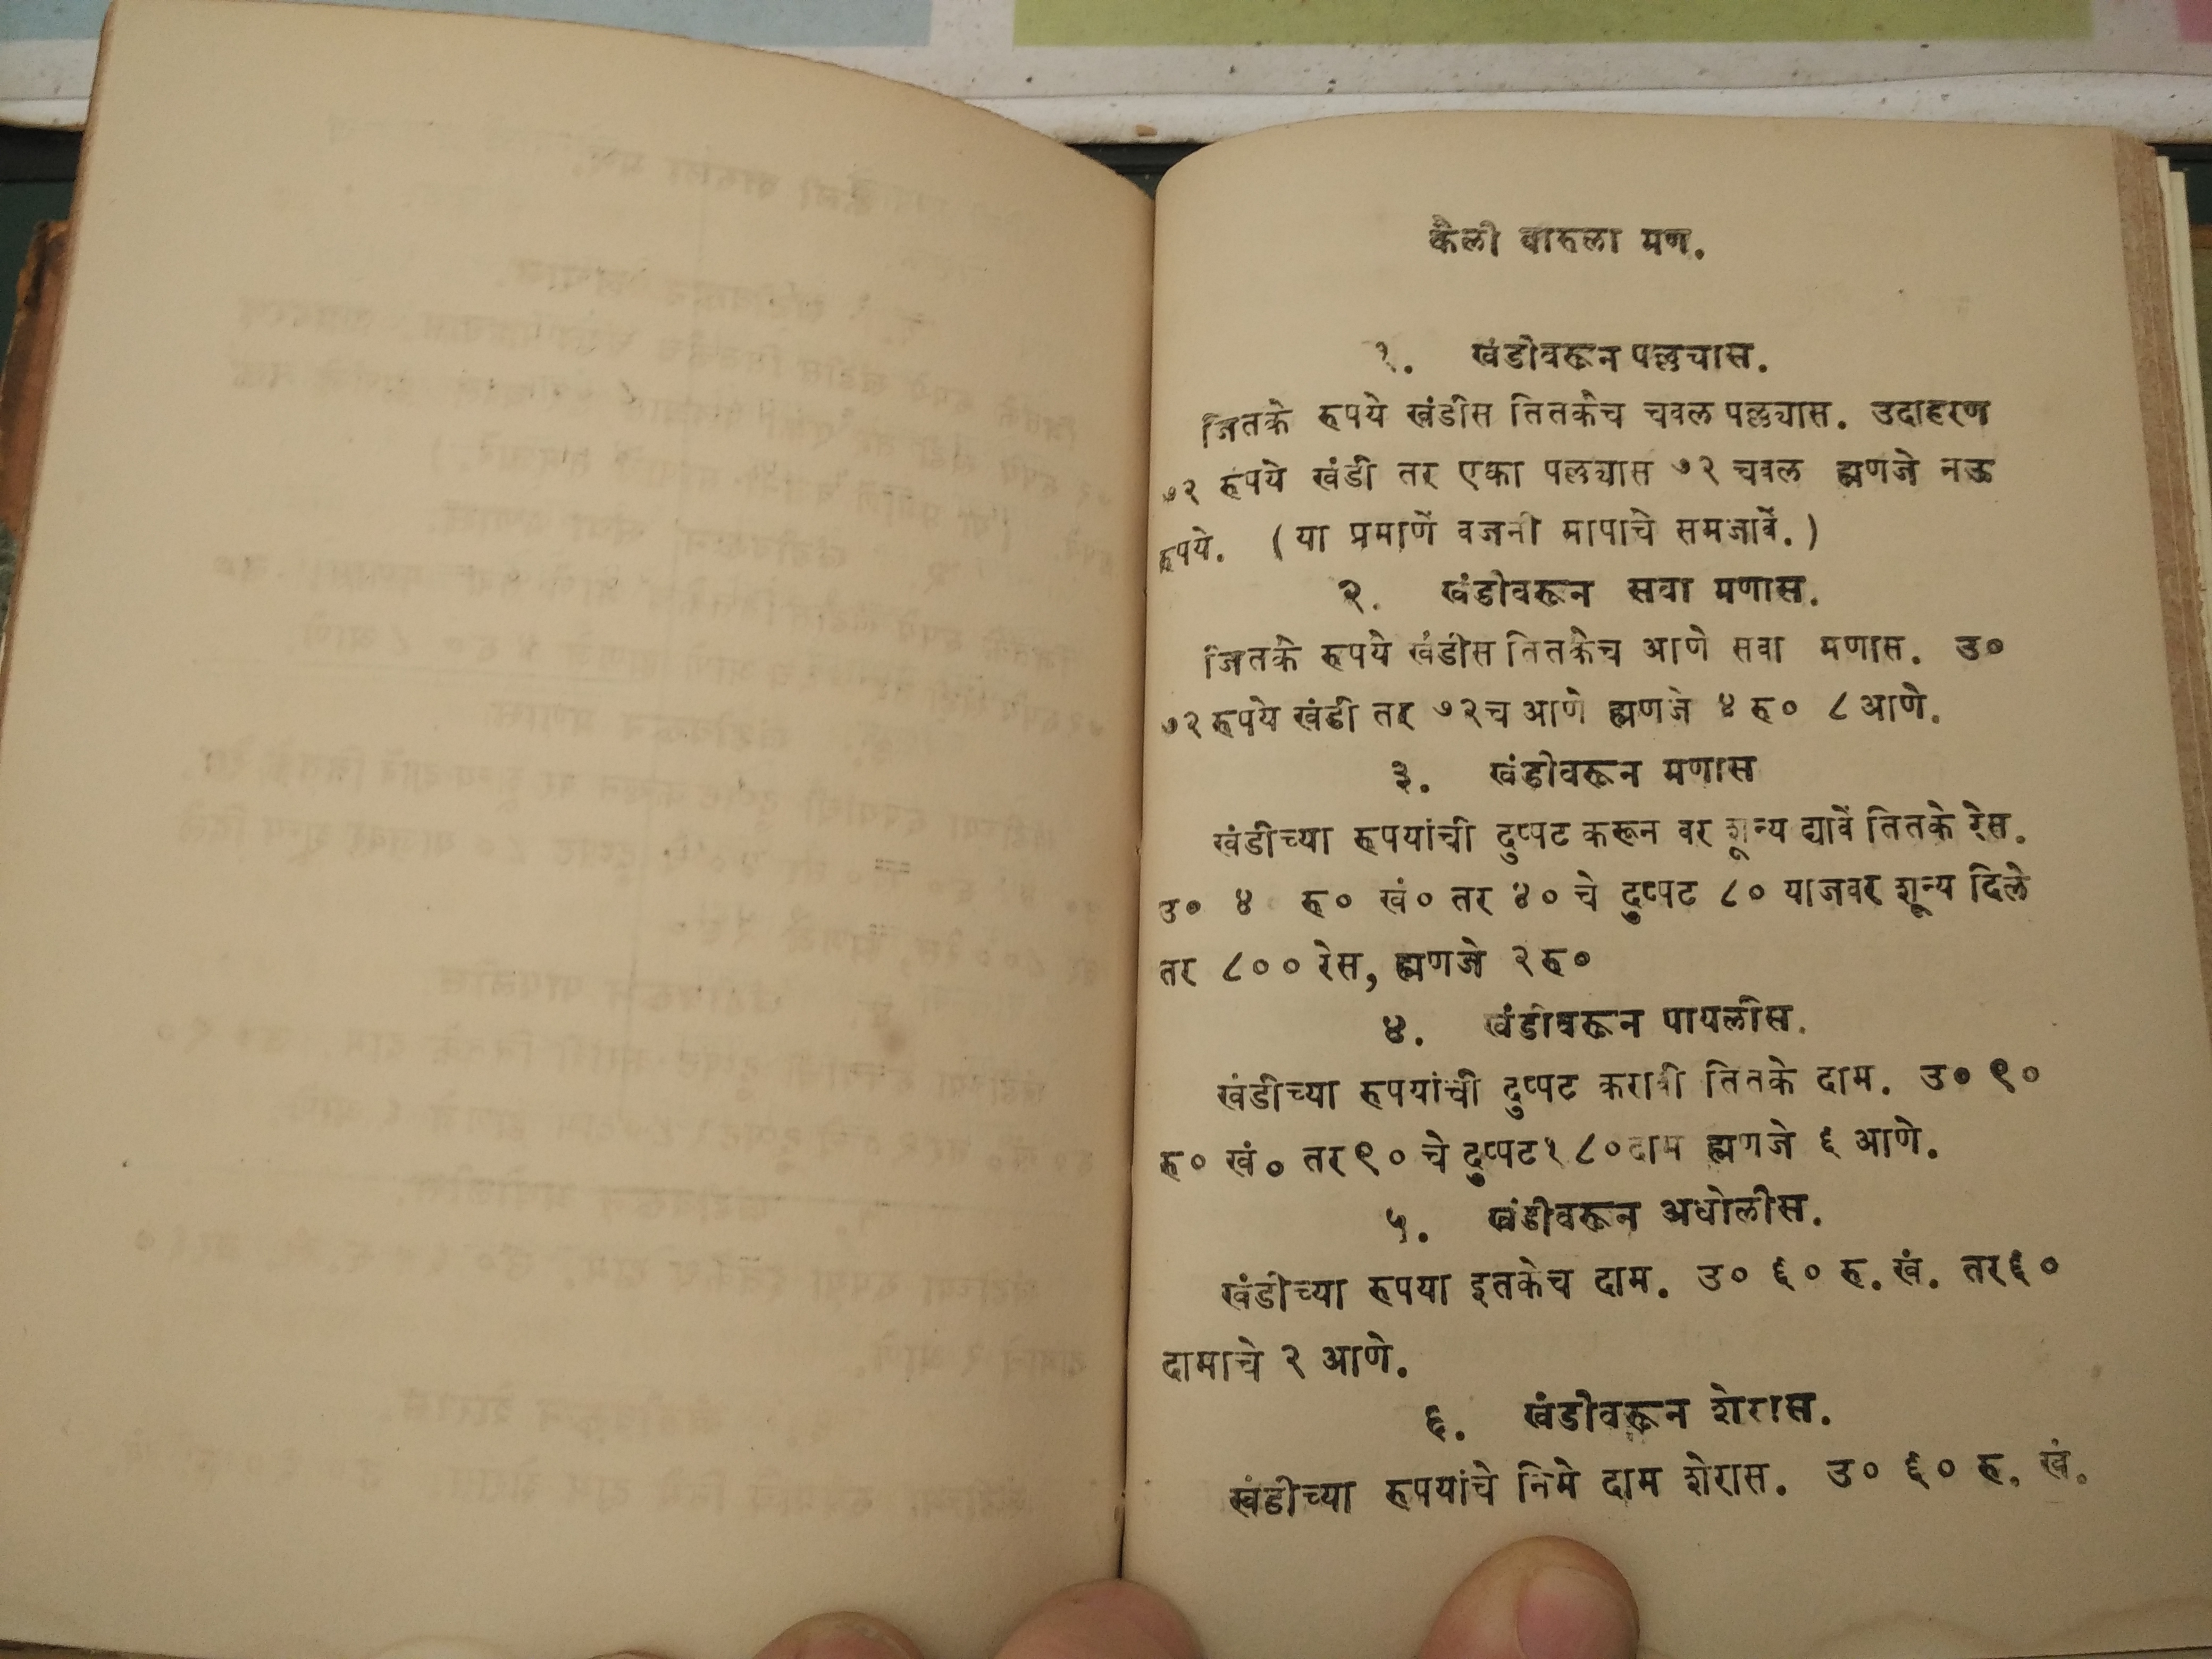 कैली बारुला मण.
१. खंडीवरून पल्लयास.
जितके रुपये खंडीस तितकेच चवल पल्लयास. उदाहरण
७२ रुपये खंडी तर एका पल्लयास ७२ चवल ह्मणजे नऊ
रुपये. (या प्रमाणें वजनी मापाचे समजावें.)
२. खंडीवरून सवा मणास.
जितके रुपये खंडीस तितकेच आणे सवा मणास. उ०
७२ रुपये खंडी तर ७२च आणे ह्मणजे ४ रु० ८ आणे.
३. खंडीवरून मणास
खंडीच्या रुपयांची दुप्पट करून वर शून्य द्यावें तितके रेस.
उ० ४ रु० खं० तर ४० चे दुप्पट ८० याजवर शून्य दिले
तर ८०० रेस, ह्मणजे २ रु०
४. खंडीवरून पायलीस.
खंडीच्या रुपयांची दुप्पट करावी तितके दाम. उ० ९०
रु० खं० तर ९० चे दुप्पट १८० दाम ह्मणजे ६ आणे.
५. खंडीवरून अधोलीस.
खंडीच्या रुपया इतकेच दाम. उ० ६० रु. खं. तर ६०
दामाचे २ आणे.
६. खंडीवरून शेरास.
खंडीच्या रुपयांचे निमे दाम शेरास. उ० ६० रु. खं.